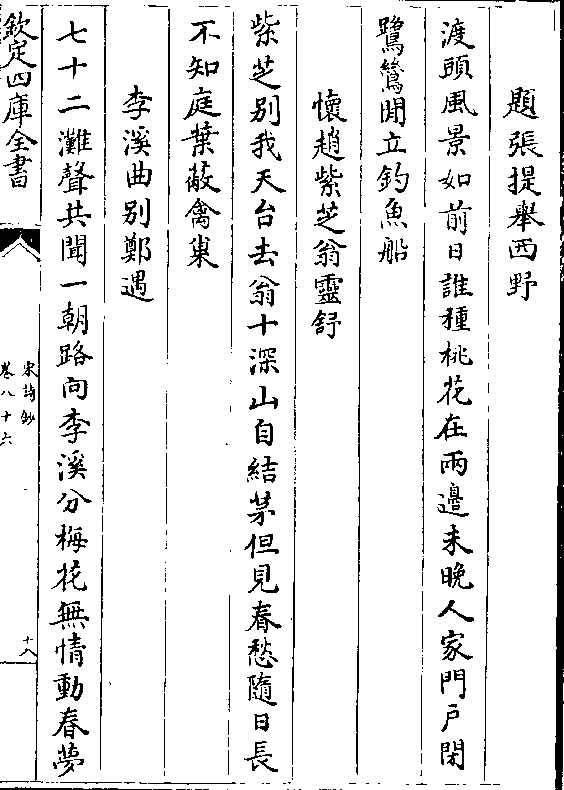 題張提舉西野
渡頭風景如前日誰種桃花在兩邊未晚人家門戶閉
鷺鷥閒立釣魚船
懷趙紫芝翁靈舒
紫芝別我天台去翁十深山自結茅但見春愁隨日長
不知庭葉蔽禽巢
李溪曲別鄭遇
七十二灘聲共聞一朝路向李溪分梅花無情動春夢
欽定四庫全書
宋詩鈔
卷八十六
十八